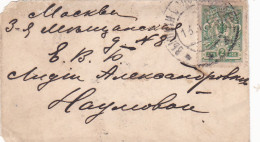 Москва
3-я Мещанская
д. № 8
Е. В. Б.
Лидии Александровны
Наумовой